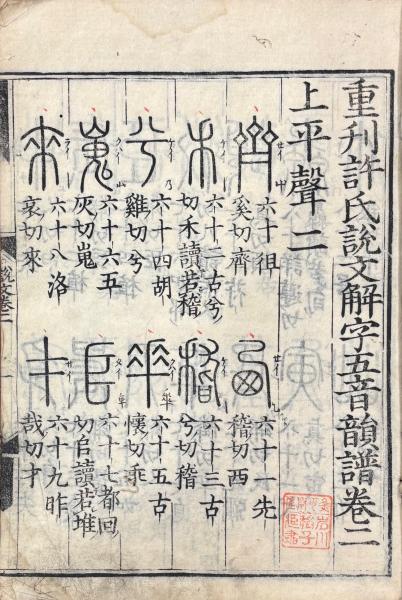 重刋許氏說文解字五音韻譜卷二
上平聲二
六十徂奚切齊
六十一先稽切西
六十二古兮切禾讀若稽
六十三古兮切稽
六十四胡雞切兮
六十五古懷切乖
六十六五灰切嵬
六十七都回切𠂤讀若堆
六十八洛哀切來
六十九昨哉切才
說文卷二